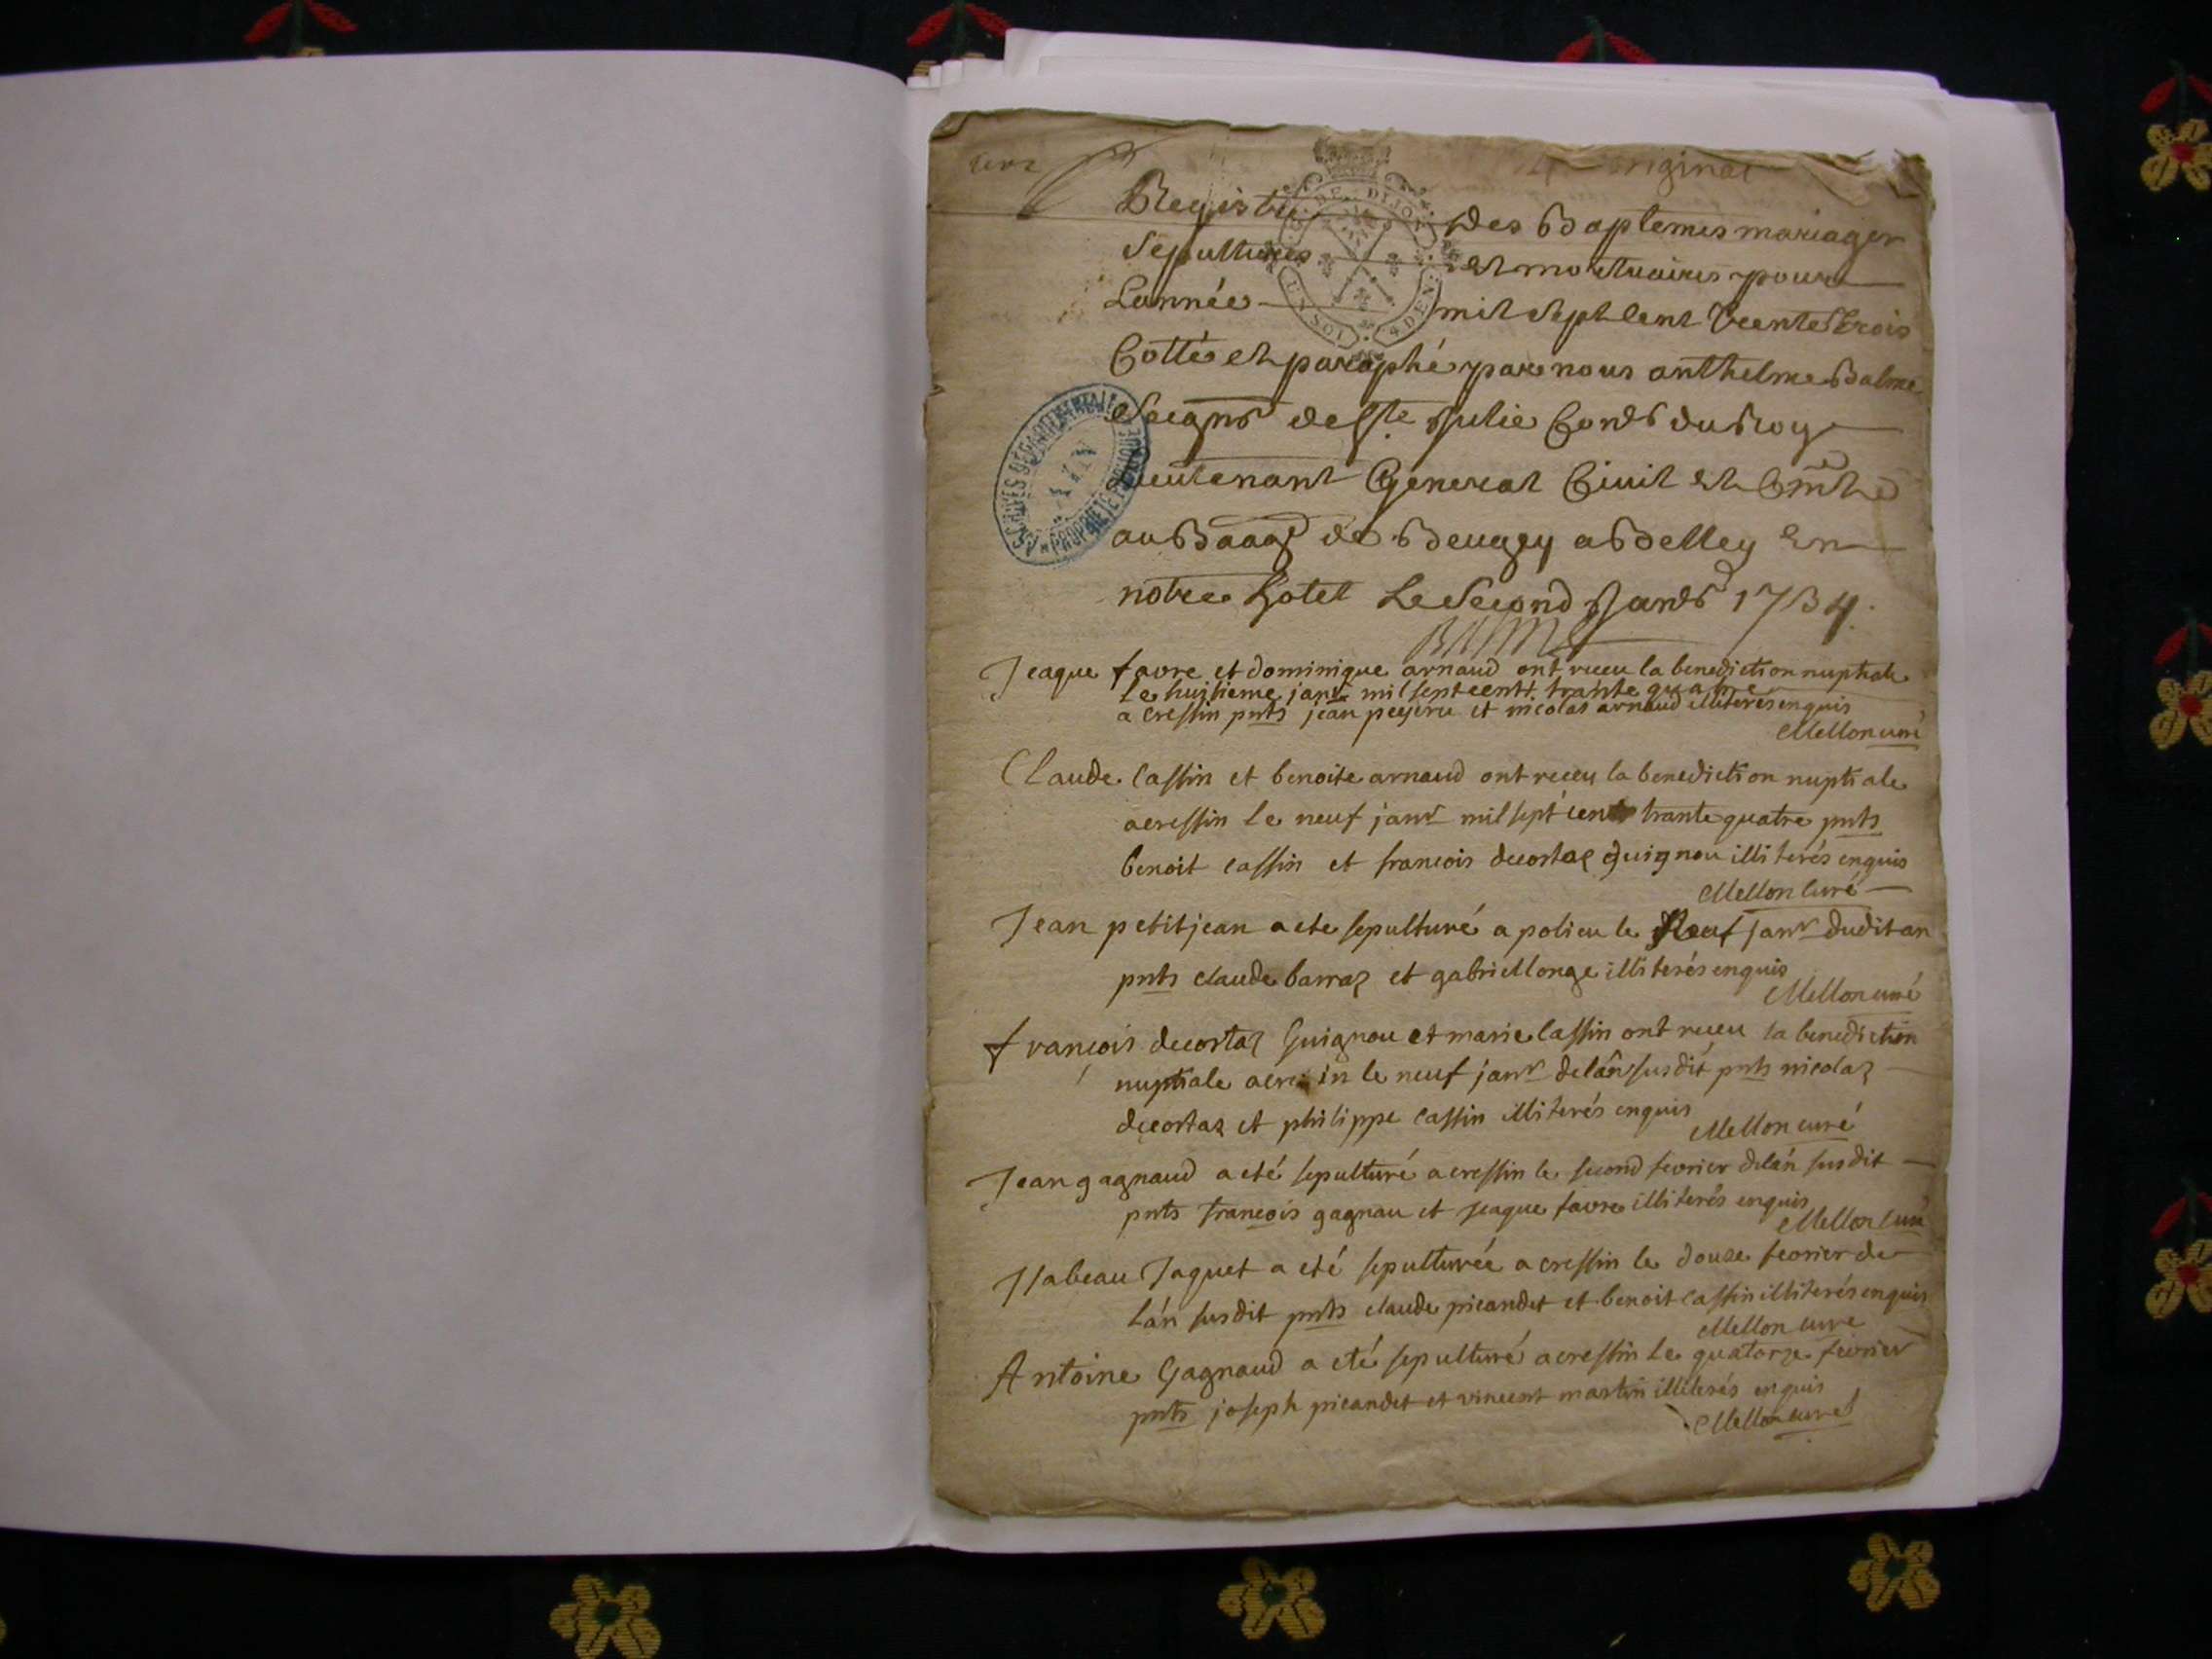 original
Registre des Baptemes mariages
Sepultures et mortuaires pour
Lannée mil sept Cent Trente Trois
Cotté et paraphé par nous anthelme Balme
Seignr de Ste Julie Coner du Roy
Lieutenant General Civil et Crimel
au Baage de Beugey a Belley En
notre hotel Le Second Janer 1734.
GE DE DIJON
UN SOL 4 DEN
ARCHIVES DÉPARTEMENTALES
AIN
PROPRIÉTÉ PUBLIQUE
Jeaque favre et dominique arnaud ont receu la benediction nuptiale
Le huitieme janr mil sept centt trante quatre
a cressin pnts jean et nicolas arnaud illiterés enquis
Mellon curé
Claude Cassin et benoite arnaud ont receu la benediction nuptiale
acressin le neuf janr mil sept cent trante quatre pnts
benoit cassin et francois decortaz guignou illiterés enquis
Mellon Curé
Jean petitjean a ete sepulturé a polieu le Neuf janr dudit an
pnts claude barraz et gabriel longe illiterés enquis
Mellon curé
françois decortaz Guignou et marie Cassin ont receu la benediction
nuptiale acressin le neuf janr de lân susdit pnts nicolaz
decortaz et philippe Cassin illiterés enquis
Mellon curé
Jean gagnaud a eté sepulturé a cressin le second fevrier de lán susdit
pnts francois gagnau et jeaque favre illiterés enquis
Mellon Curé
Isabeau Jaquet a eté sepulturée a cressin le douze fevrier de
lán susdit pnts claude picandet et benoit Cassin illiterés enquis
Mellon curé
Antoine Gagnaud a eté sepulturé acressin le quatorze fevrier
pnts joseph picandet et vincent martin illiterés enquis
Mellon curé